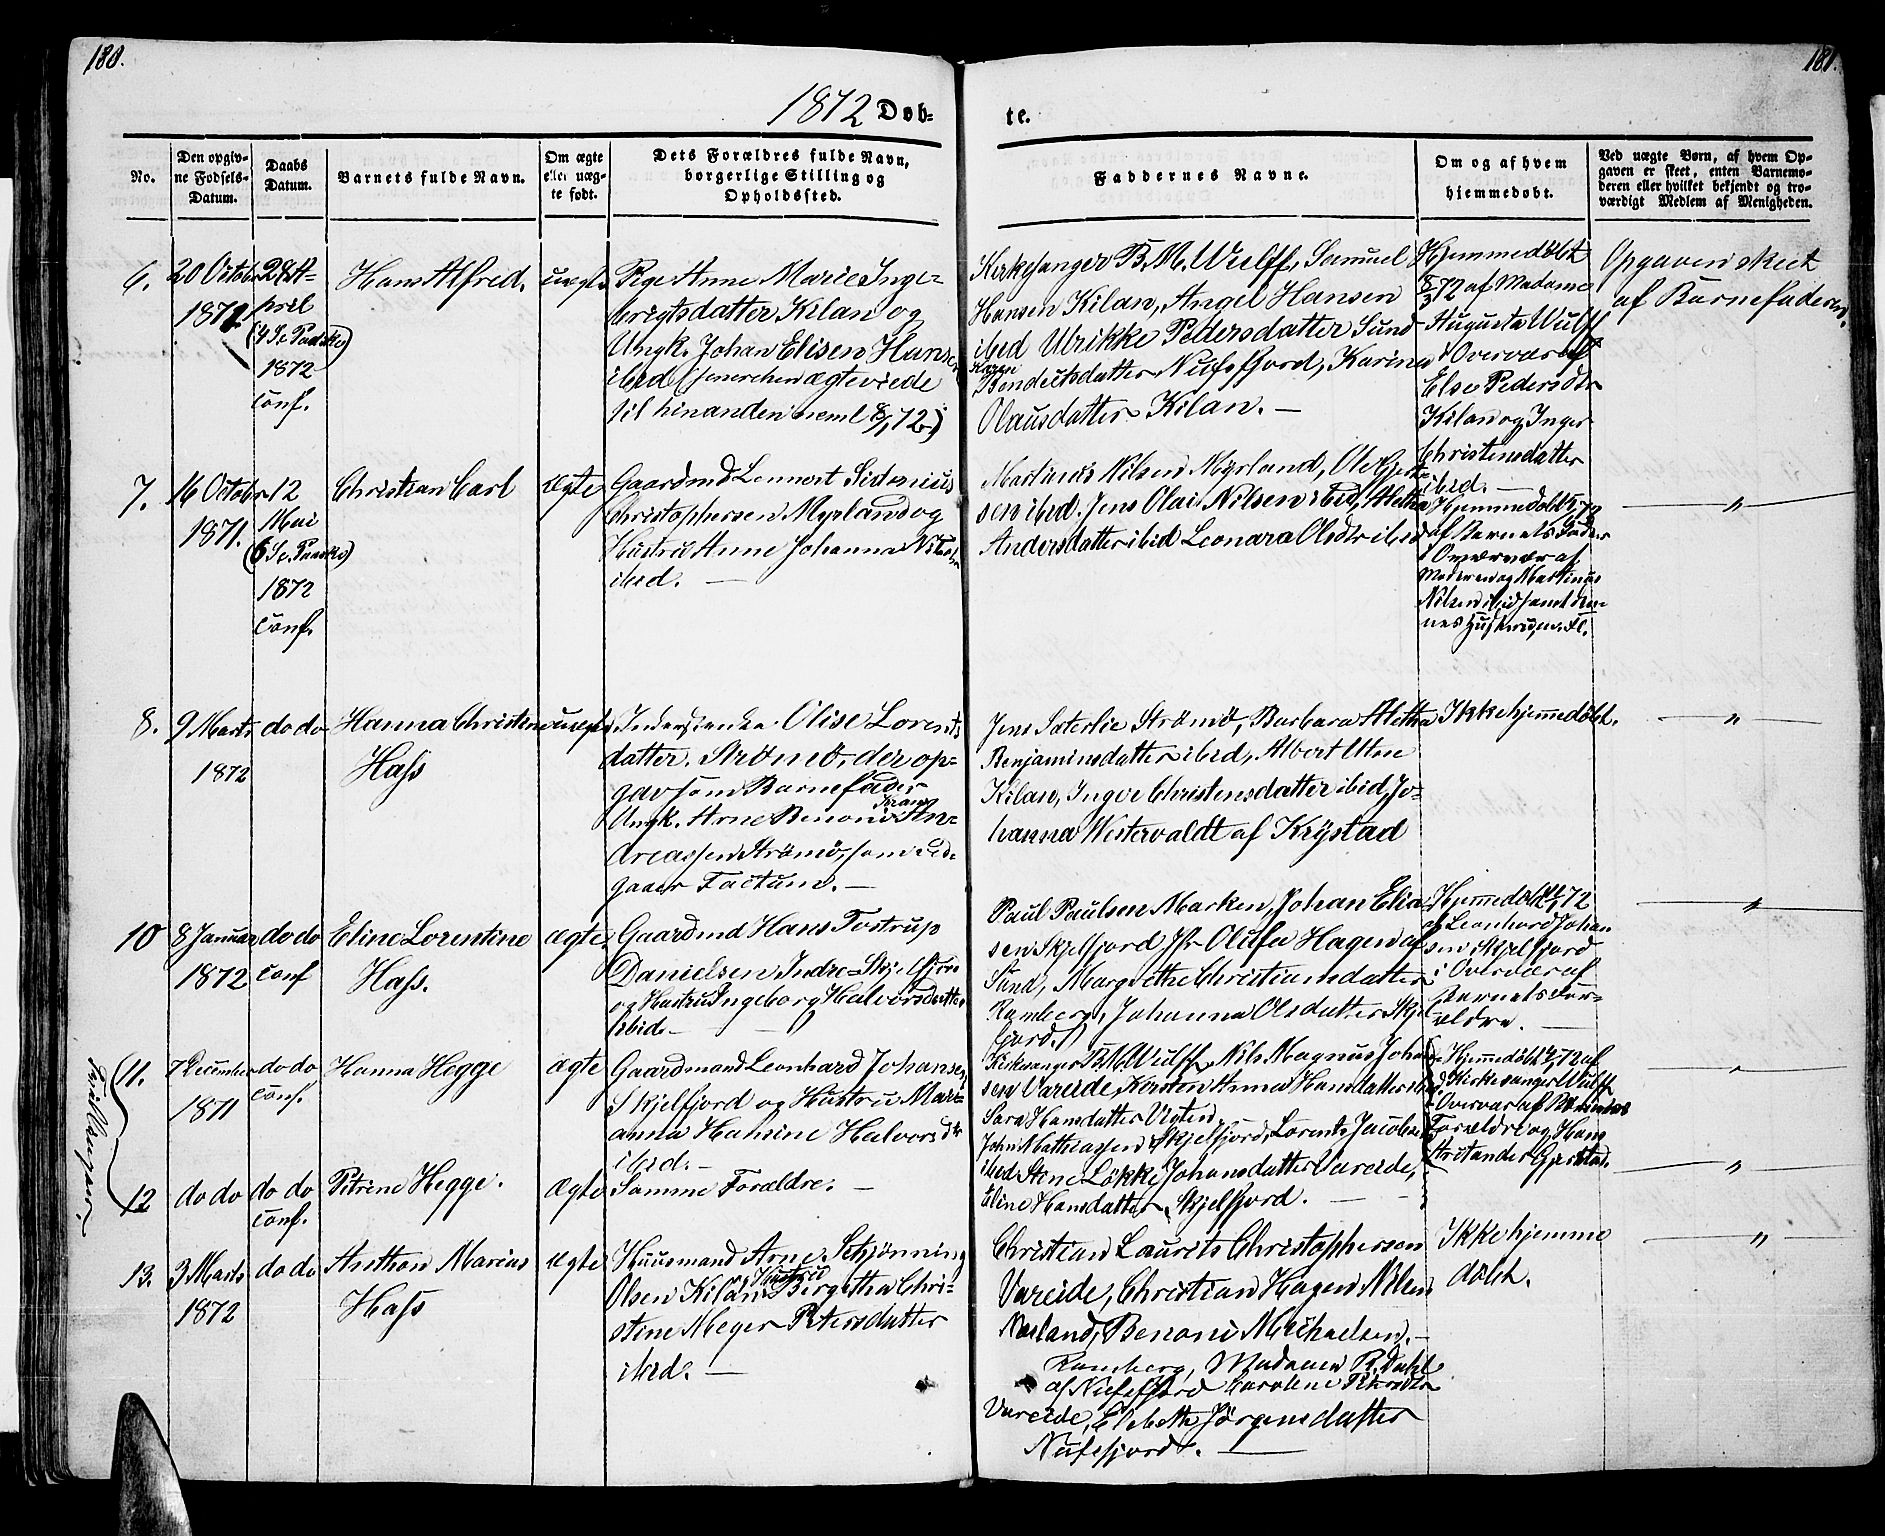 180.
181.
1872 Døb-
te.
No.
Den opgiv-
ne Fødsels-
Datum.
Daabs
Datum.
Barnets fulde Navn.
Om ægte
eller uæg-
te født.
Dets Forældres fulde Navn,
borgerlige Stilling og
Opholdssted.
Faddernes Navne.
Om og af hvem
hjemmedøbt.
Ved uægte Børn, af hvem Op-
gaven er skeet, enten Barnemo-
deren eller hvilket bekjendt og tro-
værdigt Medlem af Menigheden.
6.
20 Octobr
1871
28 A-
pril
(4 S. e. Paaske)
1872
conf.
Hans Alfred.
uægte
Pge Anne Marie Inge-
brigtsdatter Kilan og
Ungk. Johan Elisen Hansen
ibid (senere hen ægteviede
til hinanden neml 8/1 72)
Kirkesanger B. M. Wulff, Samuel
Hansen Kilan, Angel Hansen
ibid Ulrikke Pedersdatter Sund
Karen
Bendeitsdatter Nusfjord, Karina
Olausdatter Kilan. —
Hjemmedøbt
8/3 72 af Madame
Augusta Wulff
i Overvær af
Else Pedersdtr
Kilan og Inger
Christensdatter
ibid. —
Opgaven skeet
af Barnefaderen.
7.
16 Octobr
1871.
12
Mai
(6 S. e. Paaske)
1872
conf.
Christian Carl
ægte
Gaardmd Lennert Sidonius
Christophersen Myrland og
Hustru Anne Johanna
ibid. —
Martinus Nilsen Myrland, Ole
sen ibid. Jens Olai Nilsen ibid, Aletha
Andersdatter ibid Leonara Olsdtr ibid
Hjemmedøbt
af Barnets Fader
i Overvær af
Moderen og Martinus
Nilsen ibid samt den-
nes Hustru m. Fl.
"
8.
9 Marts
1872
do do
Hanna Christine
Hass
uægte
Inderstenke Olise Lorents
datter, Strømø, der op-
gav som Barnefader
Ungk. Arne Benoni An-
dreassen Strømø, som ved-
gaaer Factum. —
Jens Sæterlie Strømø, Barbara Aletha
Benjaminsdatter ibid, Albert
Kilan, Inger Christensdatter ibid, Jo-
hanna Westervaldt af Krystad
Ikke hjemmedøbt.
"
10
8 Januar
1872
do do
conf
Eline Lorentine
Hass.
ægte
Gaardmd Hans Tostrup
Danielsen Indre-Skjelfjord
og Hustru Ingeborg Halvorsdatter
ibid. —
Paul Paulsen Marken, Johan Elia-
sen Skjelfjord Jfr Olufa Hagen af
Sund, Margrethe Christiansdatter
Ramberg, Johanna Olsdatter Skjel-
fjord.
Hjemmedøbt 72
af Leonhard Johan
sen Skjelfjord
i Overvær af
Barnets For-
ældre. —
"
Tvillingpar.
11.
7 December
1871
do do
conf.
Hanna Hegge
ægte
Gaardmand Leonhard Johansen,
Skjelfjord og Hustru Mari-
anna Hansine Halvorsdtr
ibid. —
Kirkesanger B. M. Wulff, Nils Magnus Johan
sen Vareide, Anna Hansdatter ibid
Sara Hansdatter
John Matheassen Skjelfjord, Lorents Jacobsen
ibid. Stine Løkke Johansdatter Vareide,
Eline Hansdatter Skjelfjord. —
Hjemmedøbt 72 af
Kirkesanger Wulff
i Overvær af Barnets
Forældre og Hans
"
12
do do
do do
conf.
Petrine Hegge.
Ægte
Samme Forældre. —
"
13.
3 Marts
1872
do do
Anthon Marius
Hass
ægte
Huusmand Arne Schjønning
Olsen Kilan, Hustru Bergetha Chri-
stine Meyer Petersdatter
ibid. —
Christian Laurits Christophersen
Vareide, Christian Hagen Nilsen
Næsland, Benoni Michaelsen. —
Ramberg, Madame R. Dahl
af Nusfjord Caroline Pedersdtr
Vareide, Elebeth Jørgensdatter
Nusfjord. —
Ikke hjemme
døbt.
"